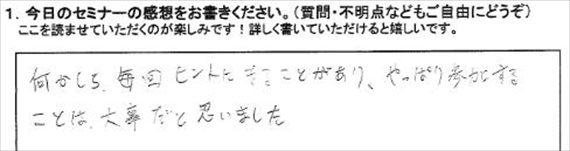 1. 今日のセミナーの感想をお書きください。(質問・不明点などもご自由にどうぞ)
ここを読ませていただくのが楽しみです!詳しく書いていただけると嬉しいです。
何かしら、毎回 ヒントに なることがあり、やっぱり参加する
ことは、大事 だと 思いました